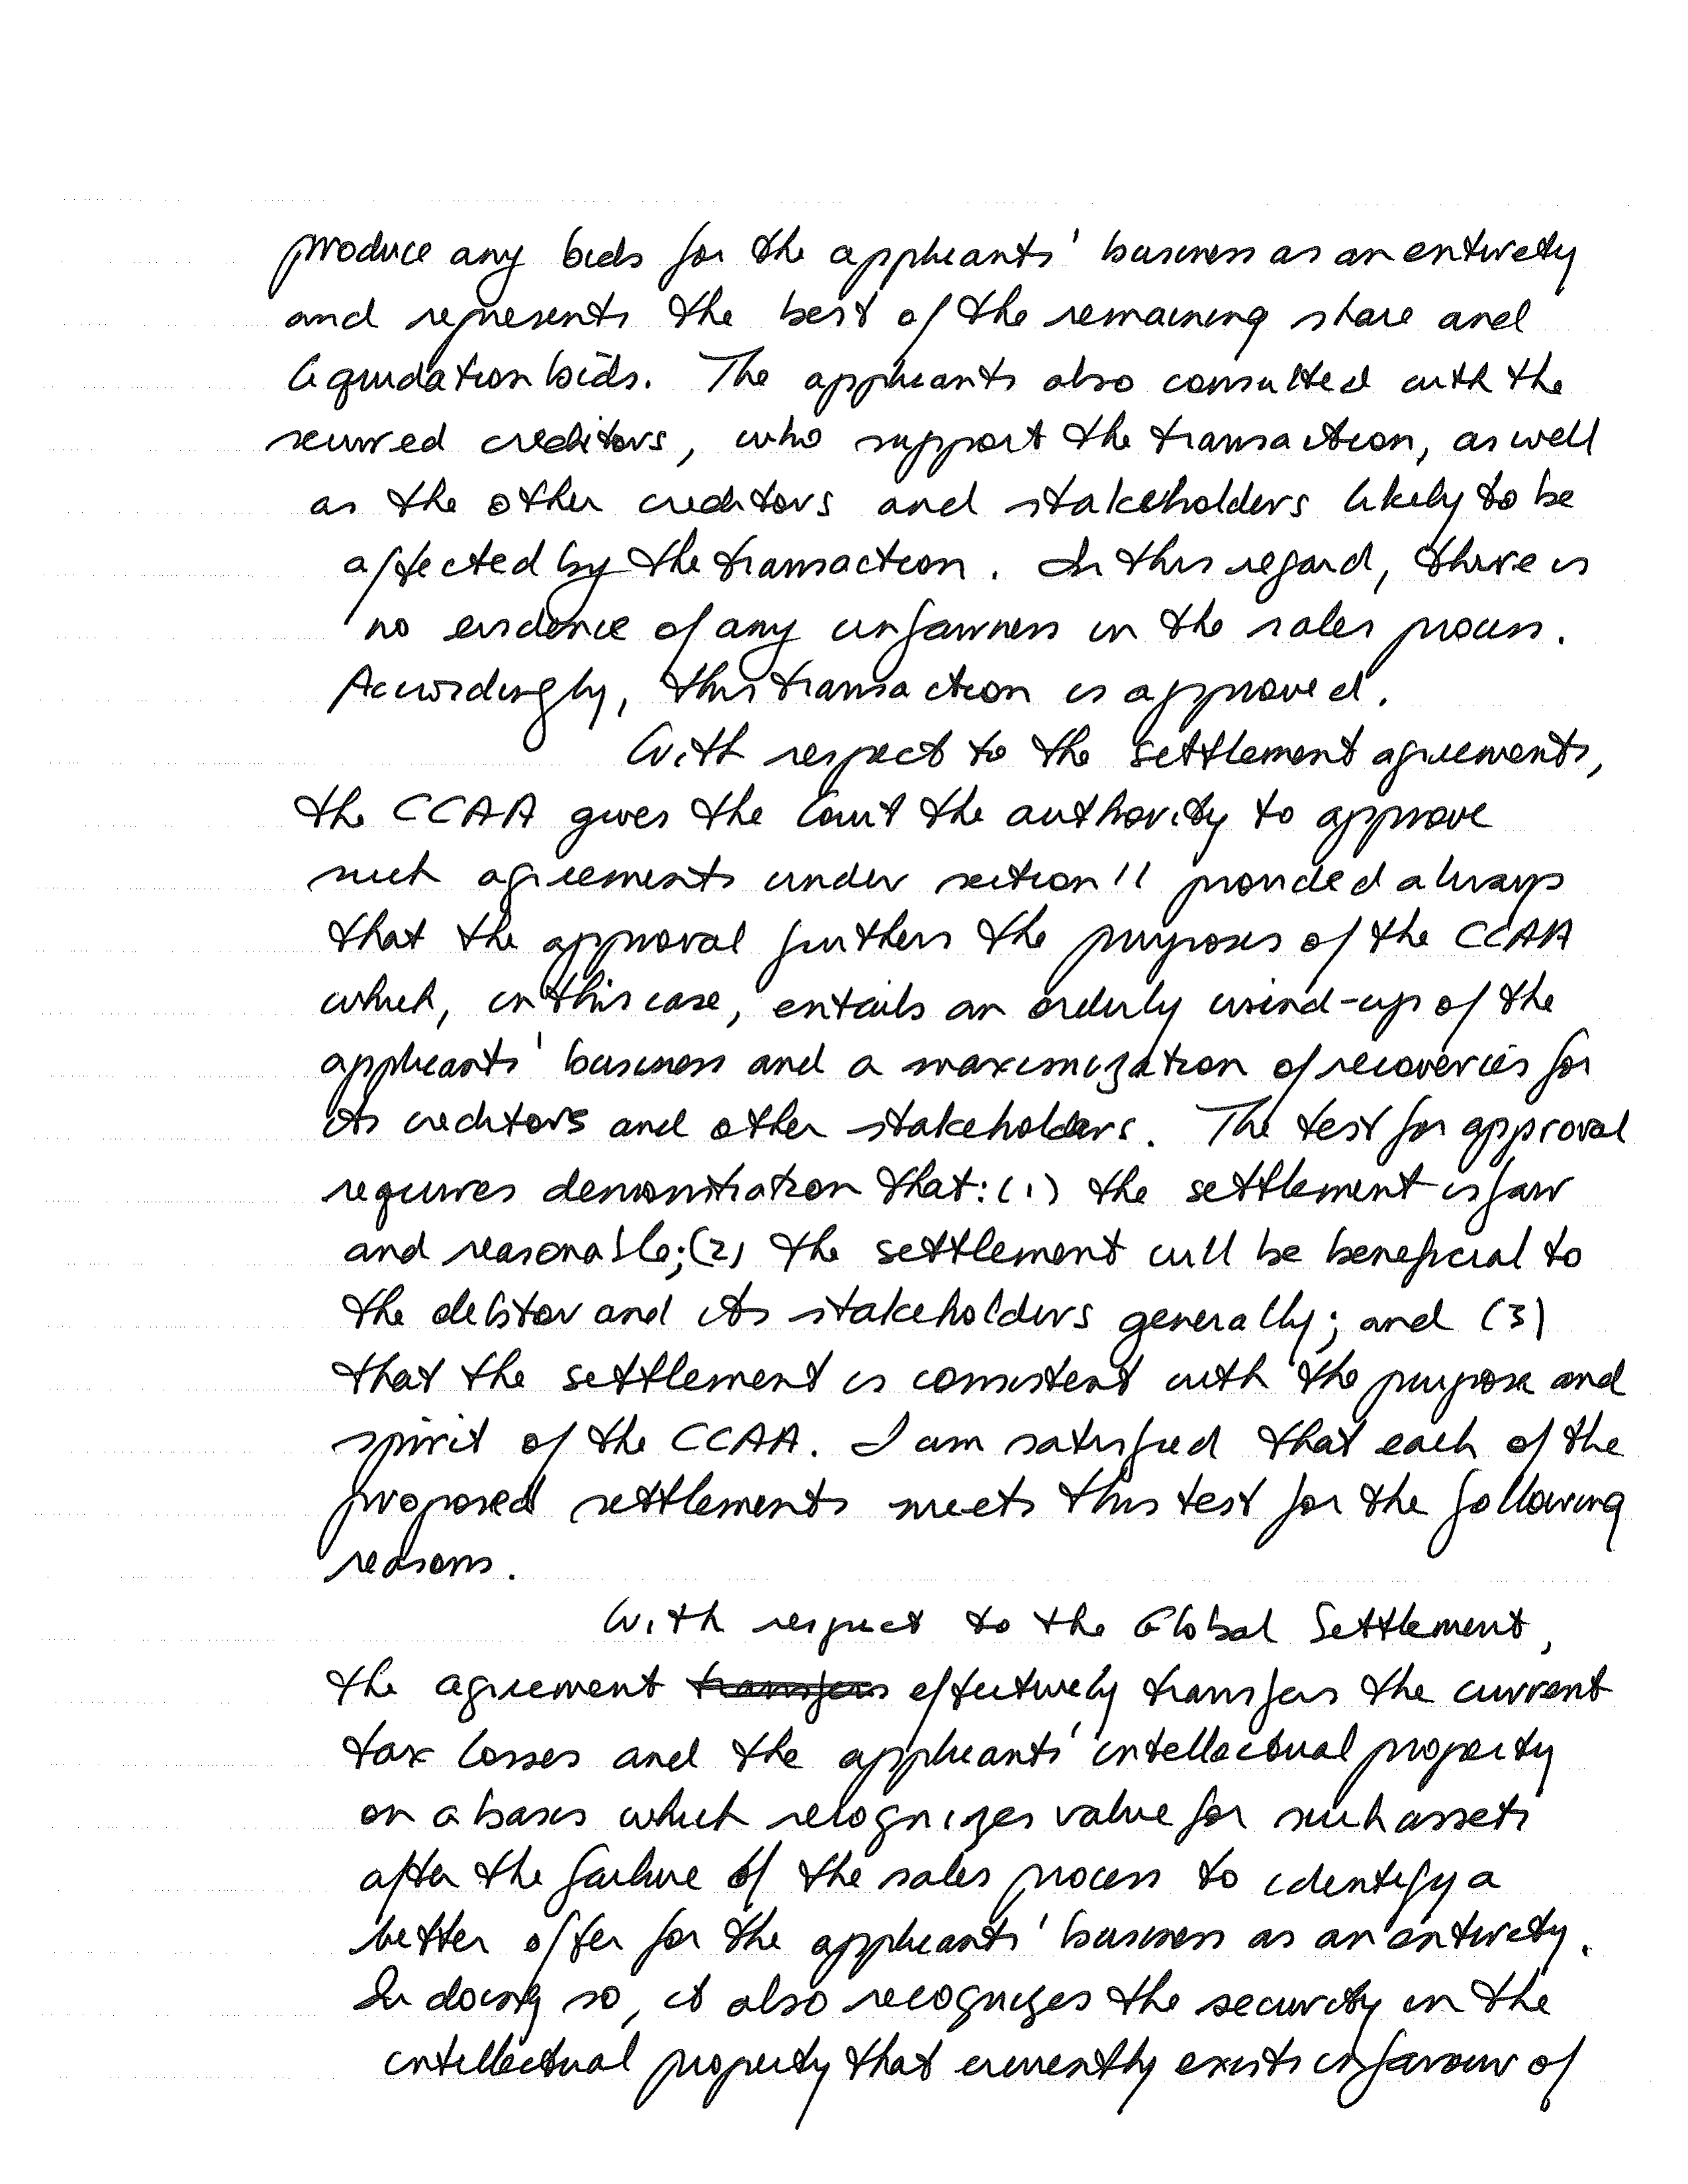 produce any bids for the applicants' business as an entirety
and represents the best of the remaining share and
liquidation bids. The applicants also consulted with the
secured creditors, who support the transaction, as well
as the other creditors and stakeholders likely to be
affected by the transaction. In this regard, there is
no evidence of any unfairness in the sales process.
Accordingly, this transaction is approved.
With respect to the settlement agreements,
the CCAA gives the Court the authority to approve
such agreements under section 11 provided always
that the approval furthers the purposes of the CCAA
which, in this case, entails an orderly wind-up of the
applicants' business and a maximization of recoveries for
its creditors and other stakeholders. The test for approval
requires demonstration that: (1) the settlement is fair
and reasonable; (2) the settlement will be beneficial to
the debtor and its stakeholders generally; and (3)
that the settlement is consistent with the purpose and
spirit of the CCAA. I am satisfied that each of the
proposed settlements meets this test for the following
reasons.
With respect to the Global Settlement,
the agreement transfers effectively transfers the current
tax losses and the applicants' intellectual property
on a basis which recognizes value for such assets
after the failure of the sales process to identify a
better offer for the applicants' business as an entirety.
In doing so, it also recognizes the security in the
intellectual property that currently exists in favour of